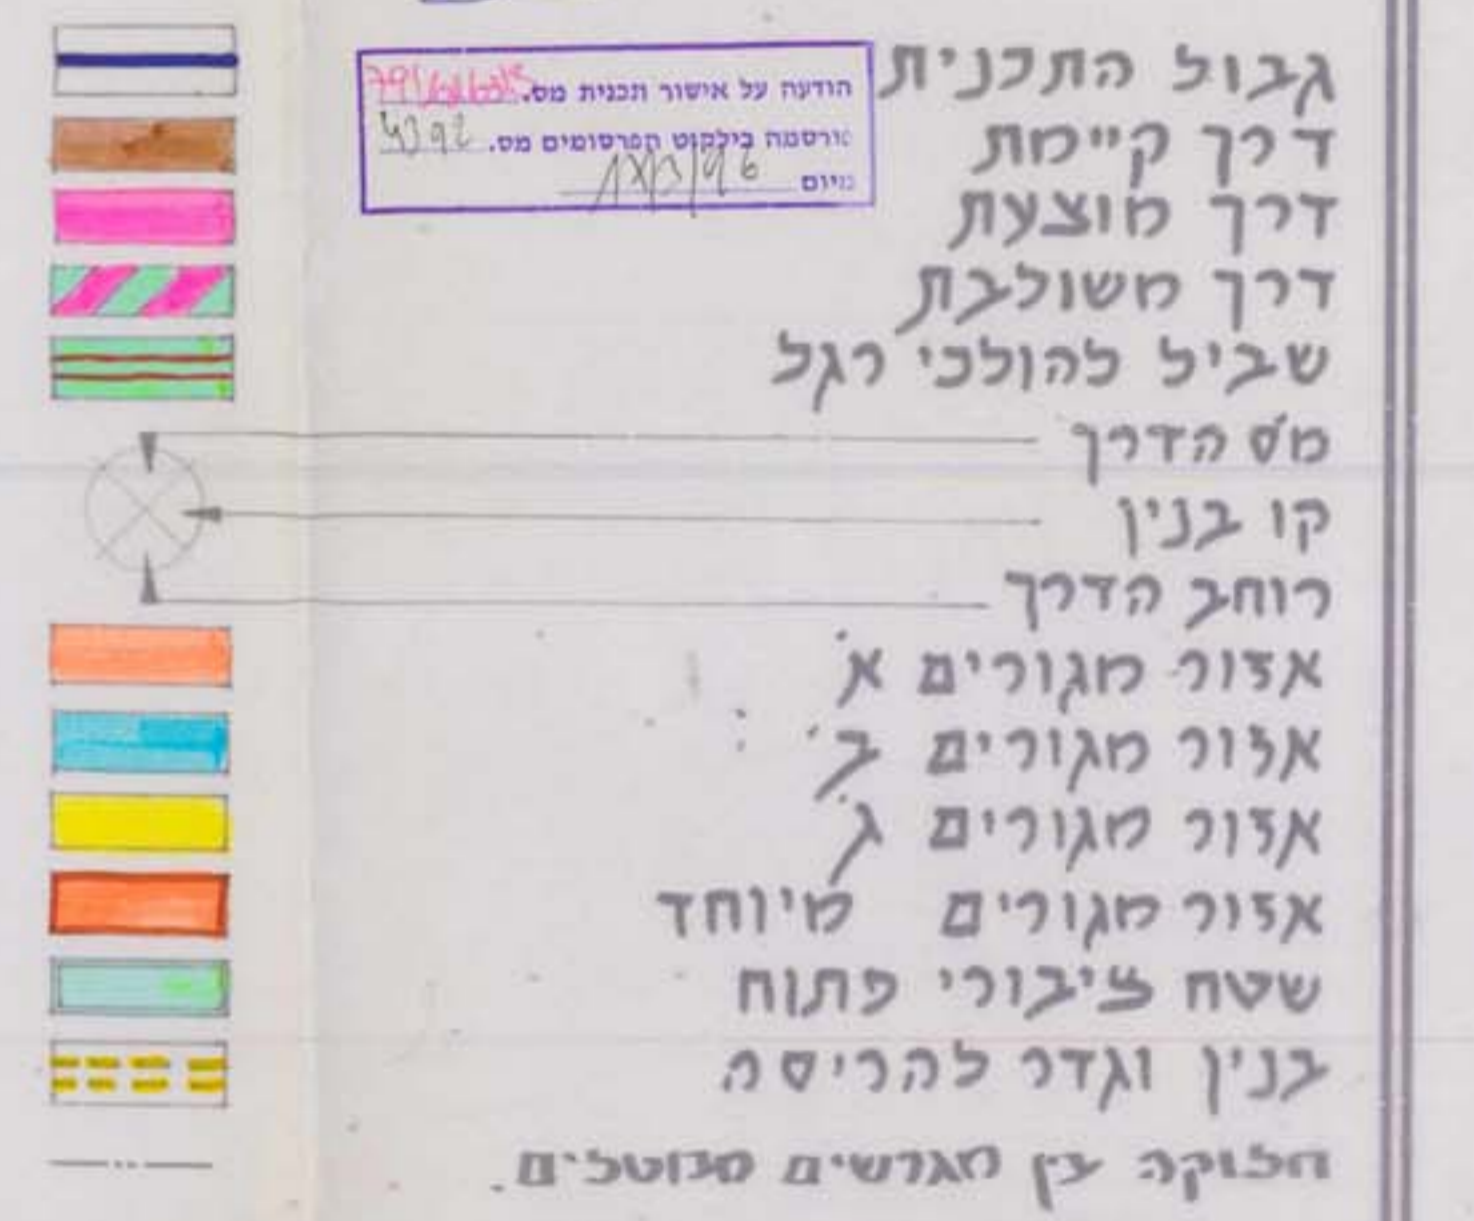 גבול התכנית
הודעה על אישור תכנית מס.
פורסמה בילקוט הפרסומים מס. 4392
מיום
דרך קיימת
דרך מוצעת
דרך משולבת
שביל להולכי רגל
מס הדרך
קו בנין
רוחב הדרך
אזור מגורים א'
אזור מגורים ב'
אזור מגורים ג'
אזור מגורים מיוחד
שטח ציבורי פתוח
בנין וגדר להריסה
חלוקה בין מגרשים מבוטלים.